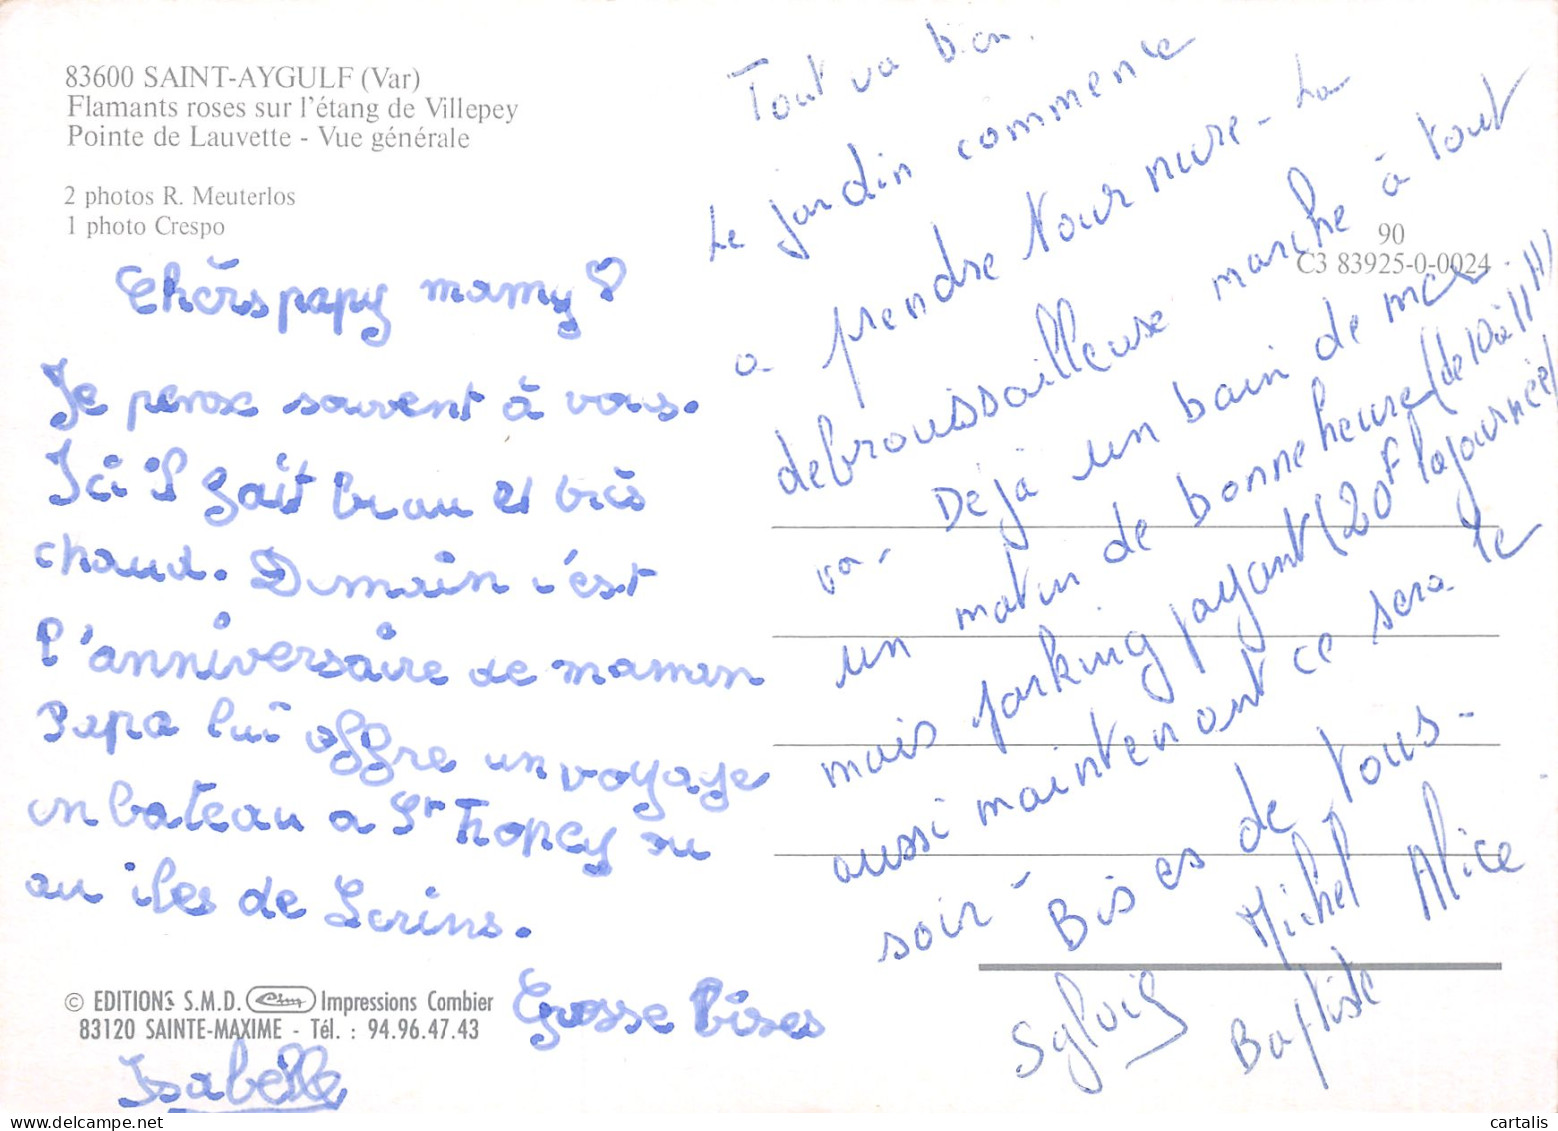 83600 SAINT-AYGULF (Var)
Flamants roses sur l'étang de Villepey
Pointe de Lauvette - Vue générale
2 photos R. Meuterlos
1 photo Crespo
90
C3 83925-0-0024
Chers papy mamy ♡
Je pense souvent à vous.
Ici il fait beau et très
chaud. Demain c'est
l'anniversaire de maman
Papa lui offre un voyage
en bateau a St Tropey ou
au îles de Lerins.
Grosse bises
Isabelle
© EDITIONS S.M.D. Cim Impressions Combier
83120 SAINTE-MAXIME - Tél. : 94.96.47.43
Tout va bien.
Le jardin commence
a prendre tournure - La
debroussailleuse marche à tout
va - Déjà un bain de mer
un matin de bonne heure (de 10 à 11 H)
mais parking payant (20F la journée)
aussi maintenant ce sera le
soir -
Bises de tous -
Sylvie Michel Alice
Baptiste
cartalis